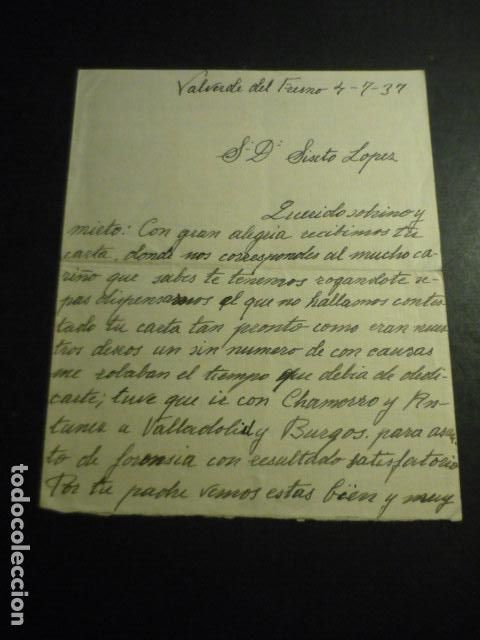 Valverde del Fresno 4-7-37
Sr. Dn. Sixto Lopez
Querido sobrino y
nieto: Con gran alegria recibimos tu
carta, donde nos correspondes al mucho ca-
riño que sabes te tenemos rogandote se-
pas dispensarnos el que no hallamos contes-
tado tu carta tan pronto como eran nues
tros deseos un sin numero de con causas
me robaban el tiempo que debia de dedi-
carte; tuve que ir con Chamorro y An-
tunez a Valladolid y Burgos, para asun
to de con resultado satisfactorio
Por tu padre vemos estas bien y muy
todocoleccion